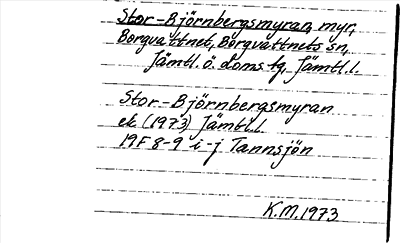 Stor-Björnbergsmyran, myr,
Borgvattnet, Borgvattnets sn,
Jämtl. ö. doms tg, Jämtl. l.
Stor-Björnbergsmyran
ek (1973) Jämtl. l.
19F 8-9 i-j Tannsjön
K.M. 1973